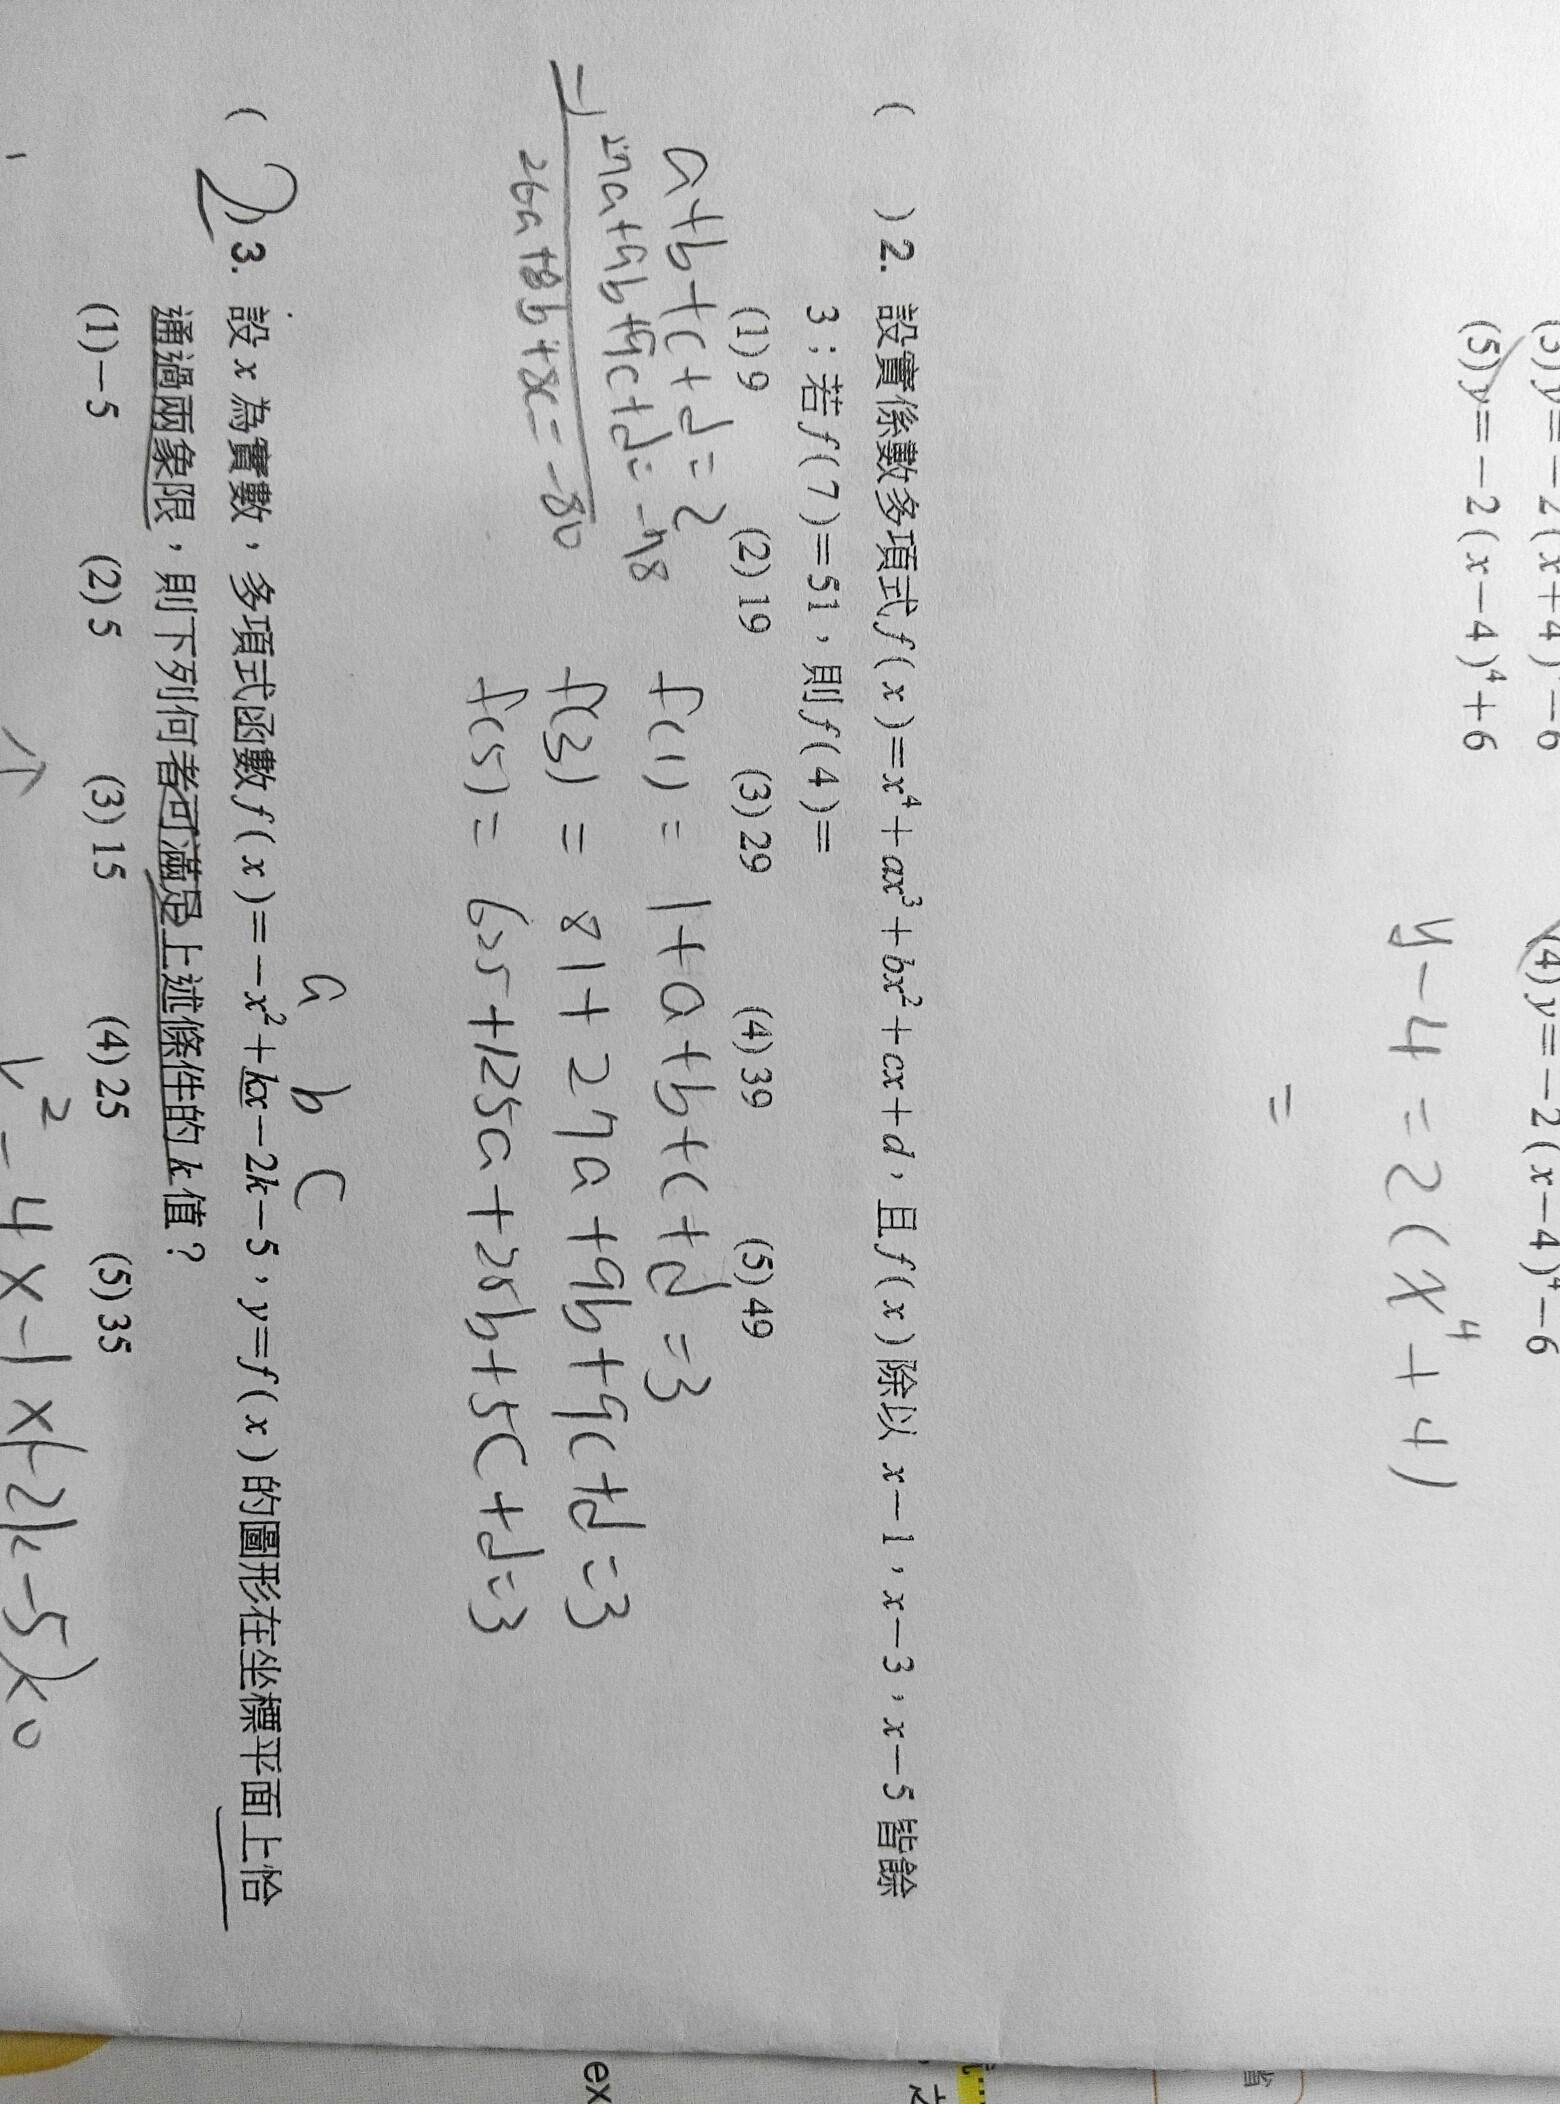 (3) y＝－2(x＋4)⁴－6
(4) y＝－2(x－4)⁴－6
(5) y＝－2(x－4)⁴＋6
y－4＝2(x⁴＋4)
＝
(　) 2. 設實係數多項式 f(x)＝x⁴＋ax³＋bx²＋cx＋d，且 f(x) 除以 x－1，x－3，x－5 皆餘
3；若 f(7)＝51，則 f(4)＝
(1) 9　(2) 19　(3) 29　(4) 39　(5) 49
a+b+c+d=2
27a+9b+9c+d=-78
-)
26a+8b+8c=-80
f(1) = 1+a+b+c+d=3
f(3) = 81+27a+9b+9c+d=3
f(5) = 625+125a+25b+5c+d=3
a b c
( 2 ) 3. 設 x 為實數，多項式函數 f(x)＝－x²＋kx－2k－5，y＝f(x) 的圖形在坐標平面上恰
通過兩象限，則下列何者可滿足上述條件的 k 值？
(1)－5　(2) 5　(3) 15　(4) 25　(5) 35
k²-4x-1x(-2k-5)<0